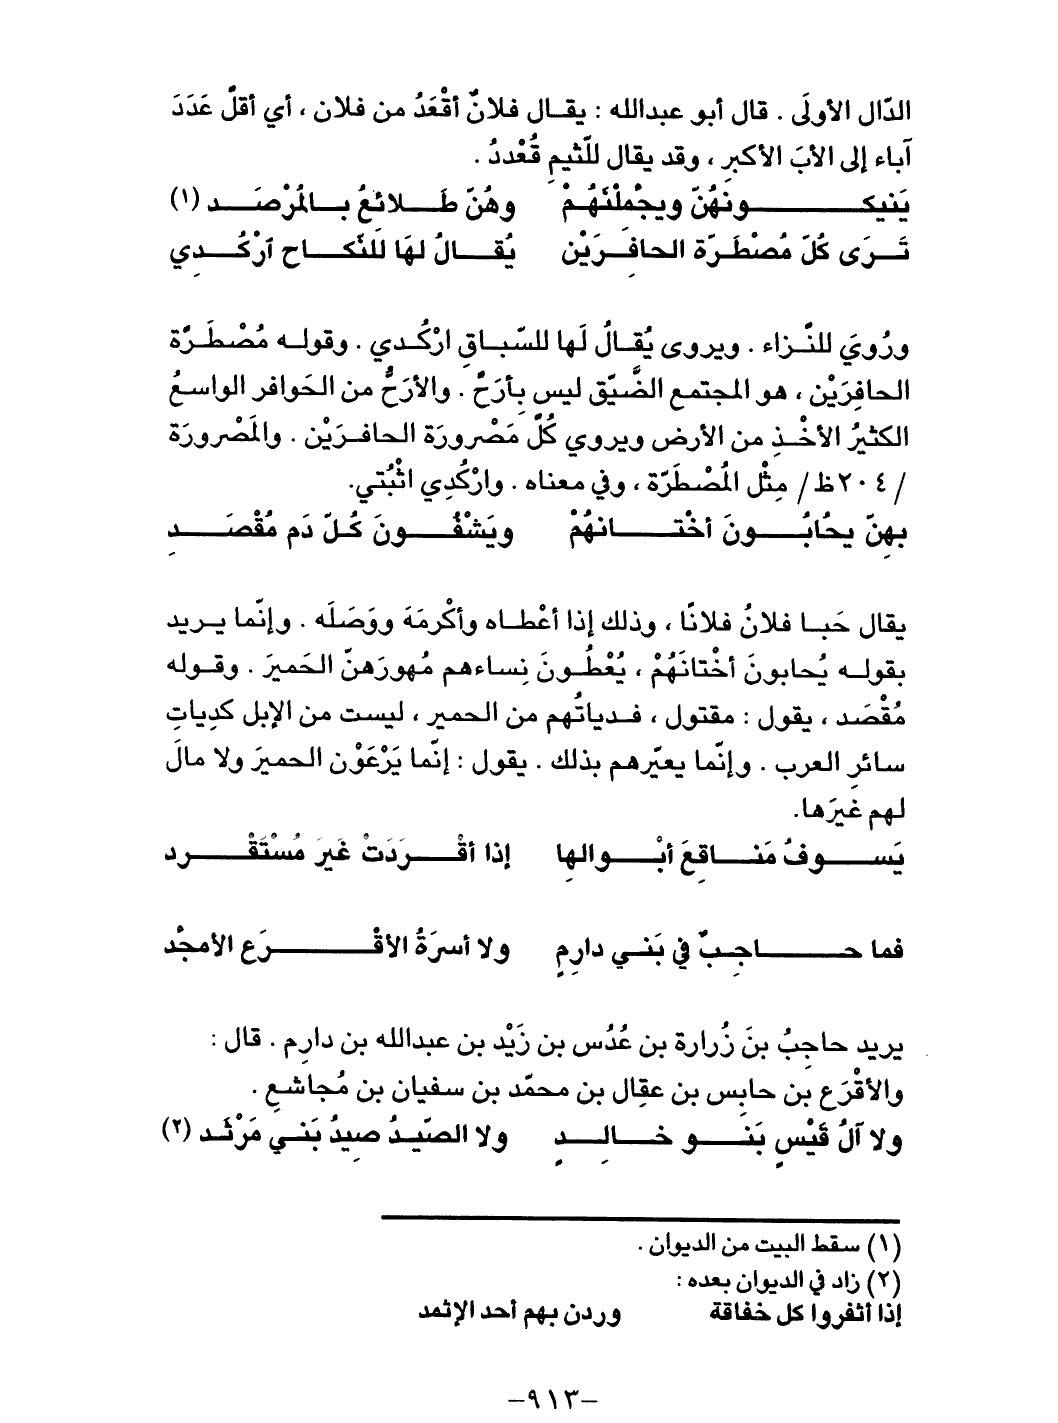 الدّال الأولَى . قال أبو عبدالله : يقال فلانٌ أقْعَدُ من فلان ، أي أقلَّ عَدَدَ
آباء إلى الأبَ الأكبرِ ، وقد يقال للّئيمِ قُعْددُ .
يَنيكونهُنّ ويحْمِلْنَهُمْ وهُنّ طَلائعُ بالمُرْصَد (١)
تَرَى كُلّ مُصْطَرّة الحافِرَيْن يُقالُ لهَا لَلنّكاح آرْكُدِي
ورُويَ للنَّزاء . ويروى يُقالُ لَها للسّباقِ ارْكُدي . وقوله مُصْطَرَّة
الحافِرَيْن ، هو المجتمع الضَّيّق ليس بِأرَحَّ . والأرَحُّ من الحَوافر الواسعُ
الكثيرُ الأخْذِ من الأرض ويروي كُلَّ مَصْرورَة الحافرَيْن . والمَصْرورَة
/٢٠٤ظ/ مِثْل المُصْطَرّة ، وفي معناه . وارْكُدِي اثْبُتي.
بهِنّ يحُابُونَ أخْتانهُمْ ويَشْفُونَ كُلّ دَمٍ مُقْصَدِ
يقال حَبا فلانُ فلانًا ، وذلك إذا أعْطاه وأكْرمَهَ ووَصَلَه . وإنّما يريد
بقوله يُحابونَ أخْتانَهُمْ ، يُعْطُونَ نِساءهم مُهورَهنّ الحَميرَ . وقوله
مُقْصَد ، يقول : مقتول ، فدياتُهم من الحمير ، ليست من الإبل كدِياتِ
سائرِ العرب . وإنّما يعيّرهم بذلك . يقول : إنّما يَرْعَوْن الحميرَ ولا مالَ
لهم غيرَها.
يَسوفُ مَناقِعَ أبْوالهِا إذا أقْرَدَتْ غَيرَ مُسْتَقْرد
فما حاجِبٌ في بَني دارِمٍ ولا أسرَةُ الأقْرَع الأمجْد
يريد حاجِبُ بنَ زُرارة بن عُدُس بن زَيْد بن عبدالله بن دارِم . قال :
والأقْرَع بن حابِس بن عقِال بن محمّد بن سفيان بن مُجاشعِ .
ولا آلُ قَيْسٍ بَنو خالِدٍ ولا الصّيدُ صِيدُ بَني مَرْثَد (٢)
(١) سقط البيت من الديوان .
(٢) زاد في الديوان بعده :
إذا أثفروا كل خفاقة وردن بهم أحد الإثمد
-٩١٣-